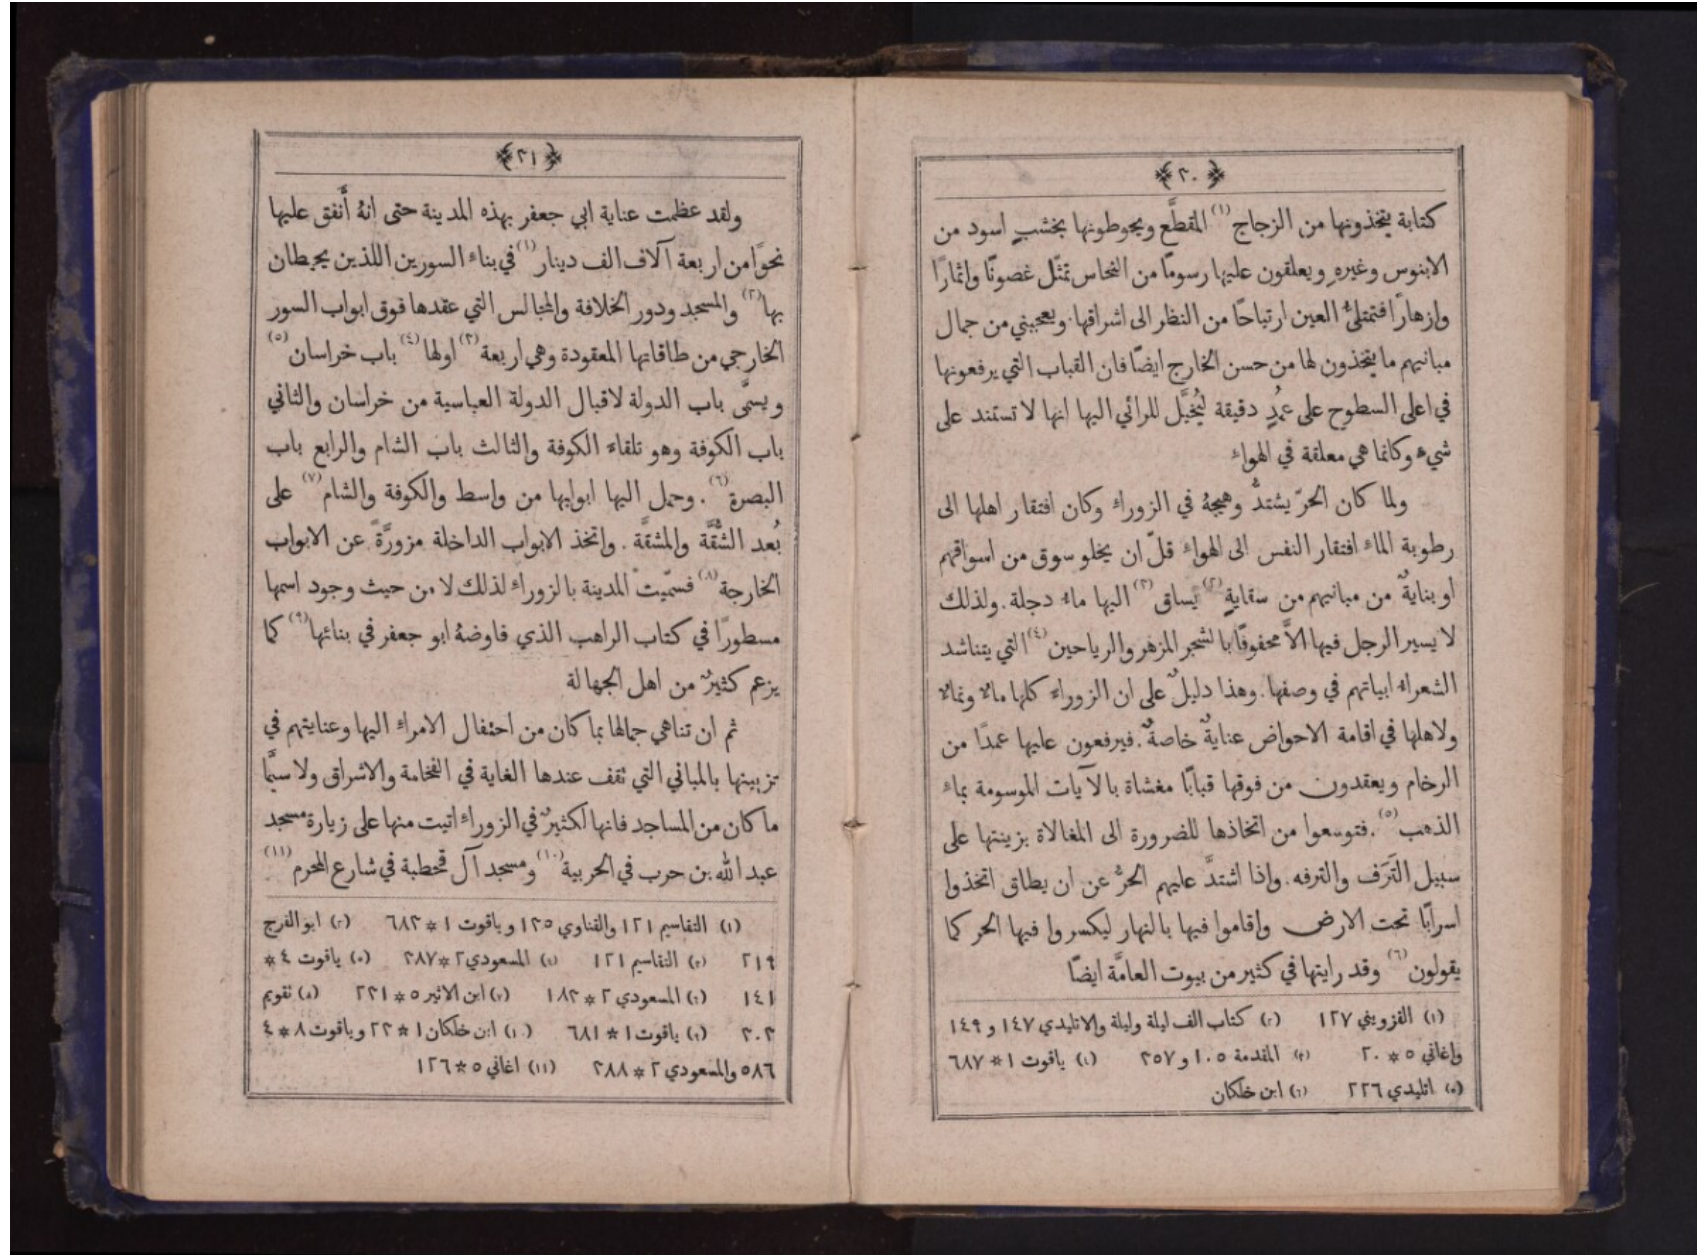 ﴿٢٠﴾
كتابة يتخذونها من الزجاج (١) المقطَّع ويحوطونها بخشبٍ اسود من
الابنوس وغيرهِ ويعلقون عليها رسومًا من النحاس تمثّل غصونًا واثمارًا
وازهارًا فتمتلئُ العين ارتياحًا من النظر الى اشراقها. ويعجبني من جمال
مبانيهم ما يتخذون لها من حسن الخارج ايضًا فان القباب التي يرفعونها
في اعلى السطوح على عمُدٍ دقيقة لَيُخيَّل للرائي اليها انها لا تستند على
شيء وكانما هي معلقة في الهواء
ولما كان الحرّ يشتدُّ وهيجهُ في الزوراء وكان افتقار اهلها الى
رطوبة الماء افتقار النفس الى الهواء قلّ ان يخلو سوق من اسواقهم
او بنايةٌ من مبانيهم من سقايةٍ (٢) يساق (٣) اليها ماء دجلة. ولذلك
لا يسير الرجل فيها الاَّ محفوفًا بالشجر المزهر والرياحين (٤) التي يتناشد
الشعراء ابياتهم في وصفها. وهذا دليلٌ على ان الزوراء كلها ماء ونماء
ولاهلها في اقامة الاحواض عنايةٌ خاصةٌ. فيرفعون عليها عمدًا من
الرخام ويعقدون من فوقها قبابًا مغشاة بالآيات الموسومة بماء
الذهب (٥). فتوسعوا من اتخاذها للضرورة الى المغالاة بزينتها على
سبيل التَرَف والترفه. واذا اشتدَّ عليهم الحرُّ عن ان يطاق اتخذوا
اسرابًا تحت الارض واقاموا فيها بالنهار ليكسروا فيها الحر كما
يقولون (٦) وقد رايتها في كثير من بيوت العامَّة ايضًا
(١) القزويني ١٢٧ (٢) كتاب الف ليلة وليلة والاتليدي ١٤٧ و ١٤٩
واغاني ٥ * ٢٠ (٣) المقدمة ١٠٥ و ٢٥٧ (٤) ياقوت ١ * ٦٨٧
(٥) اتليدي ٢٢٦ (٦) ابن خلكان
﴿٢١﴾
ولقد عظمت عناية ابي جعفر بهذه المدينة حتى انهُ أَنفق عليها
نحوًا من اربعة آلاف الف دينار (١) في بناء السورين اللذين يحيطان
بها (٢) والمسجد ودور الخلافة والمجالس التي عقدها فوق ابواب السور
الخارجي من طاقاتها المعقودة وهي اربعة (٣) اولها (٤) باب خراسان (٥)
ويسمَّى باب الدولة لاقبال الدولة العباسية من خراسان والثاني
باب الكوفة وهو تلقاء الكوفة والثالث باب الشام والرابع باب
البصرة (٦). وحمل اليها ابوابها من واسط والكوفة والشام (٧) على
بُعد الشُّقَّة والمشقَّة. واتخذ الابواب الداخلة مزورَّةً عن الابواب
الخارجة (٨) فسمّيت المدينة بالزوراء لذلك لا من حيث وجود اسمها
مسطورًا في كتاب الراهب الذي فاوضهُ ابو جعفر في بنائها (٩) كما
يزعم كثيرٌ من اهل الجهالة
ثم ان تناهي جمالها بما كان من احتفال الامراء اليها وعنايتهم في
تزيينها بالمباني التي تقف عندها الغاية في الفخامة والاشراق ولا سيَّما
ما كان من المساجد فانها لكثيرٌ في الزوراء اتيت منها على زيارة مسجد
عبد الله بن حرب في الحربية (١٠) ومسجد آل قحطبة في شارع المحرم (١١)
(١) التقاسيم ١٢١ والفناوي ١٢٥ وياقوت ١ * ٦٨٢ (٢) ابو الفرج
٢١٩ (٣) التقاسيم ١٢١ (٤) المسعودي ٢ * ٢٨٧ (٥) ياقوت ٤ *
١٤١ (٦) المسعودي ٢ * ١٨٢ (٧) ابن الاثير ٥ * ٢٢١ (٨) تقويم
٣٠٣ (٩) ياقوت ١ * ٦٨١ (١٠) ابن خلكان ١ * ٢٢ وياقوت ٨ * ٤
٥٨٦ والمسعودي ٢ * ٢٨٨ (١١) اغاني ٥ * ١٢٦